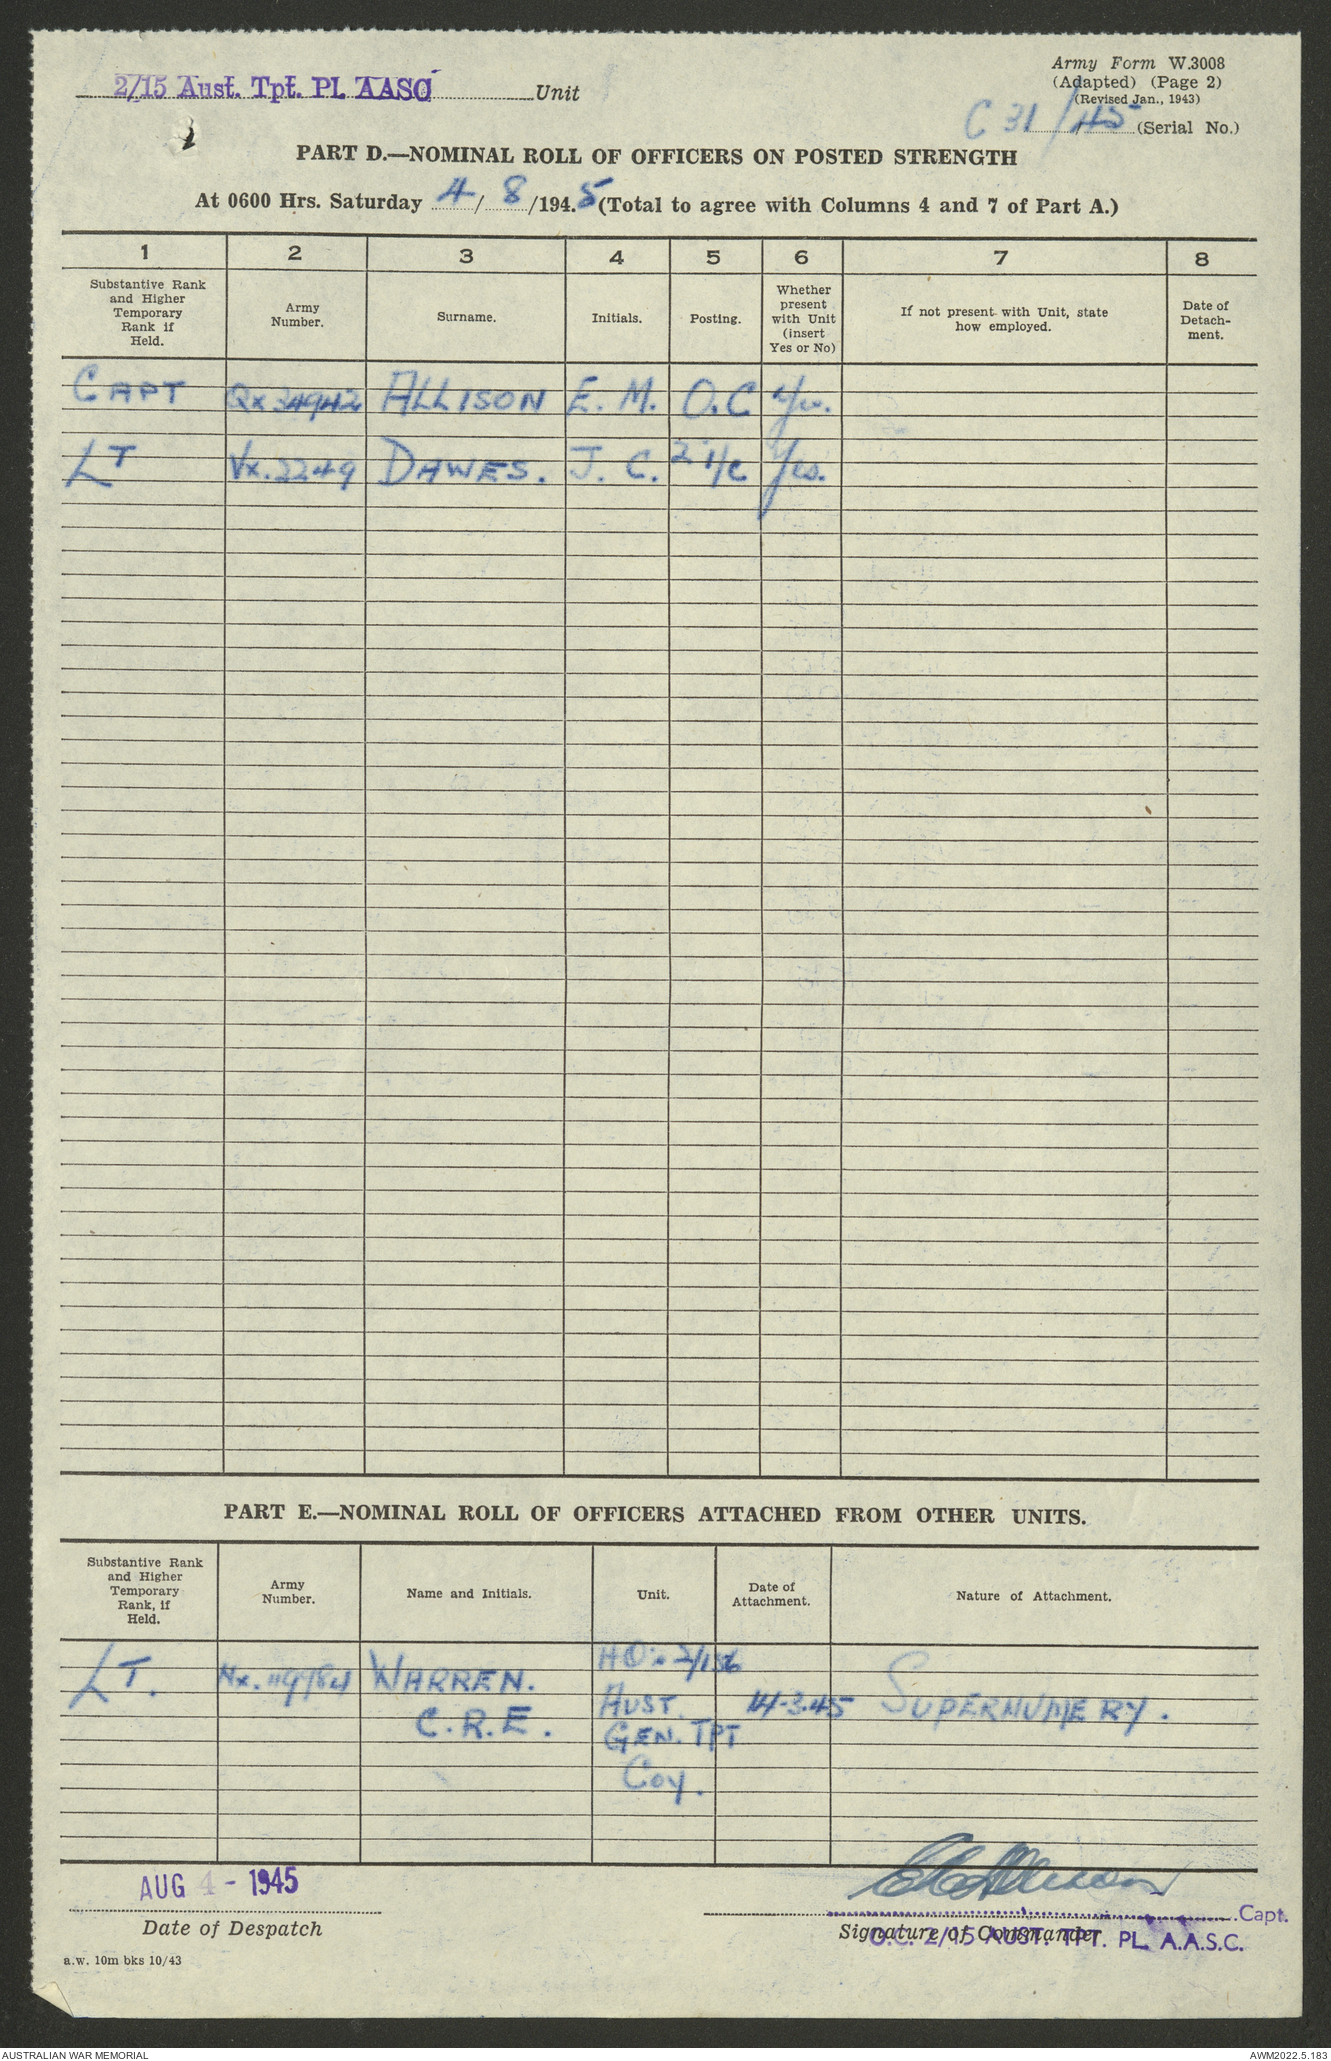 2/15 Aust. Tpt. Pl. AASC Unit
Army Form W.3008
(Adapted) (Page 2)
(Revised Jan., 1943)
C 31/45 (Serial No.)
PART D.—NOMINAL ROLL OF OFFICERS ON POSTED STRENGTH
At 0600 Hrs. Saturday 4/8/1945 (Total to agree with Columns 4 and 7 of Part A.)
1 2 3 4 5 6 7 8
Substantive Rank and Higher Temporary Rank if Held.
Army Number.
Surname.
Initials.
Posting.
Whether present with Unit (insert Yes or No)
If not present with Unit, state how employed.
Date of Detach-ment.
CAPT QX34942 ALLISON E. M. O.C Yes.
LT VX.2249 DAWES. J. C. 2 i/c Yes.
PART E.—NOMINAL ROLL OF OFFICERS ATTACHED FROM OTHER UNITS.
Substantive Rank and Higher Temporary Rank, if Held.
Army Number.
Name and Initials.
Unit.
Date of Attachment.
Nature of Attachment.
LT. WARREN. HQ. 2/156
C.R.E. AUST. 14-3.45 SUPERNUMERY.
GEN. TPT
Coy.
AUG 4 - 1945
Capt.
Date of Despatch
Signature of Commander
O.C. 2/15 AUST. TPT. PL. A.A.S.C.
a.w. 10m bks 10/43
AUSTRALIAN WAR MEMORIAL
AWM2022.5.183